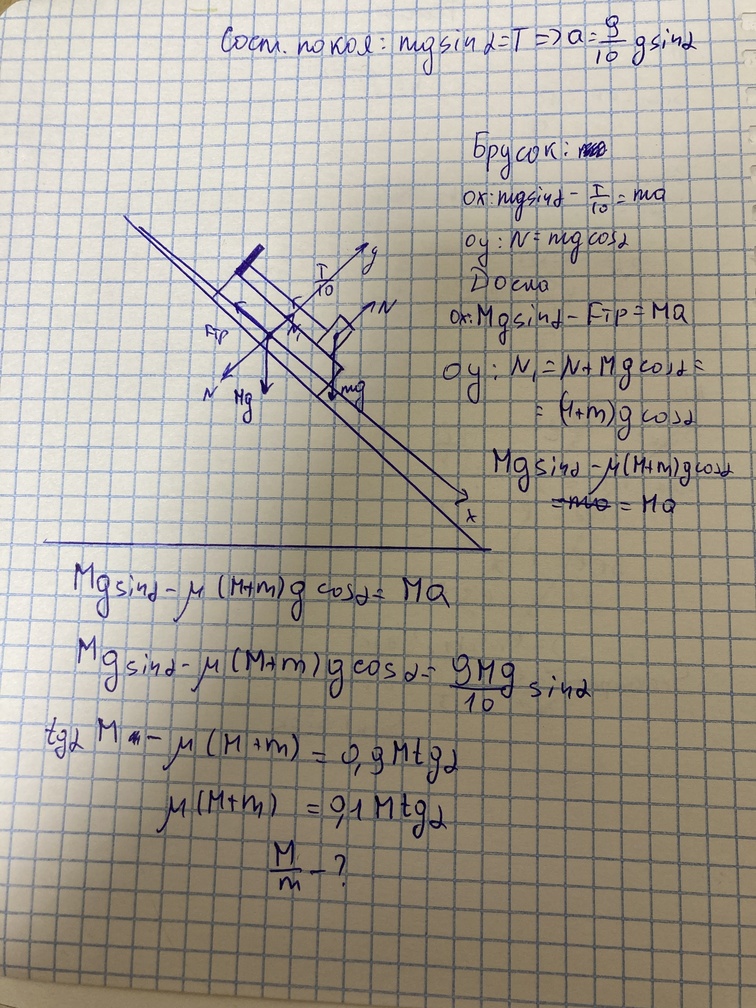 Сост. покоя: mgsinα=T => a=9/10 gsinα
Брусок:
ox: mgsinα - T/10 = ma
oy: N = mgcosα
Доска
ox: Mgsinα - Fтр = Ma
oy: N₁ = N + Mgcosα =
= (M+m)g cosα
Mgsinα - μ(M+m)gcosα
= Ma
y
T/10
N
Fтр
N₁
N
Mg
mg
x
Mgsinα - μ(M+m)g cosα = Ma
Mgsinα - μ(M+m)gcosα = 9Mg/10 sinα
tgα M - μ(M+m) = 0,9Mtgα
μ(M+m) = 0,1Mtgα
M/m - ?